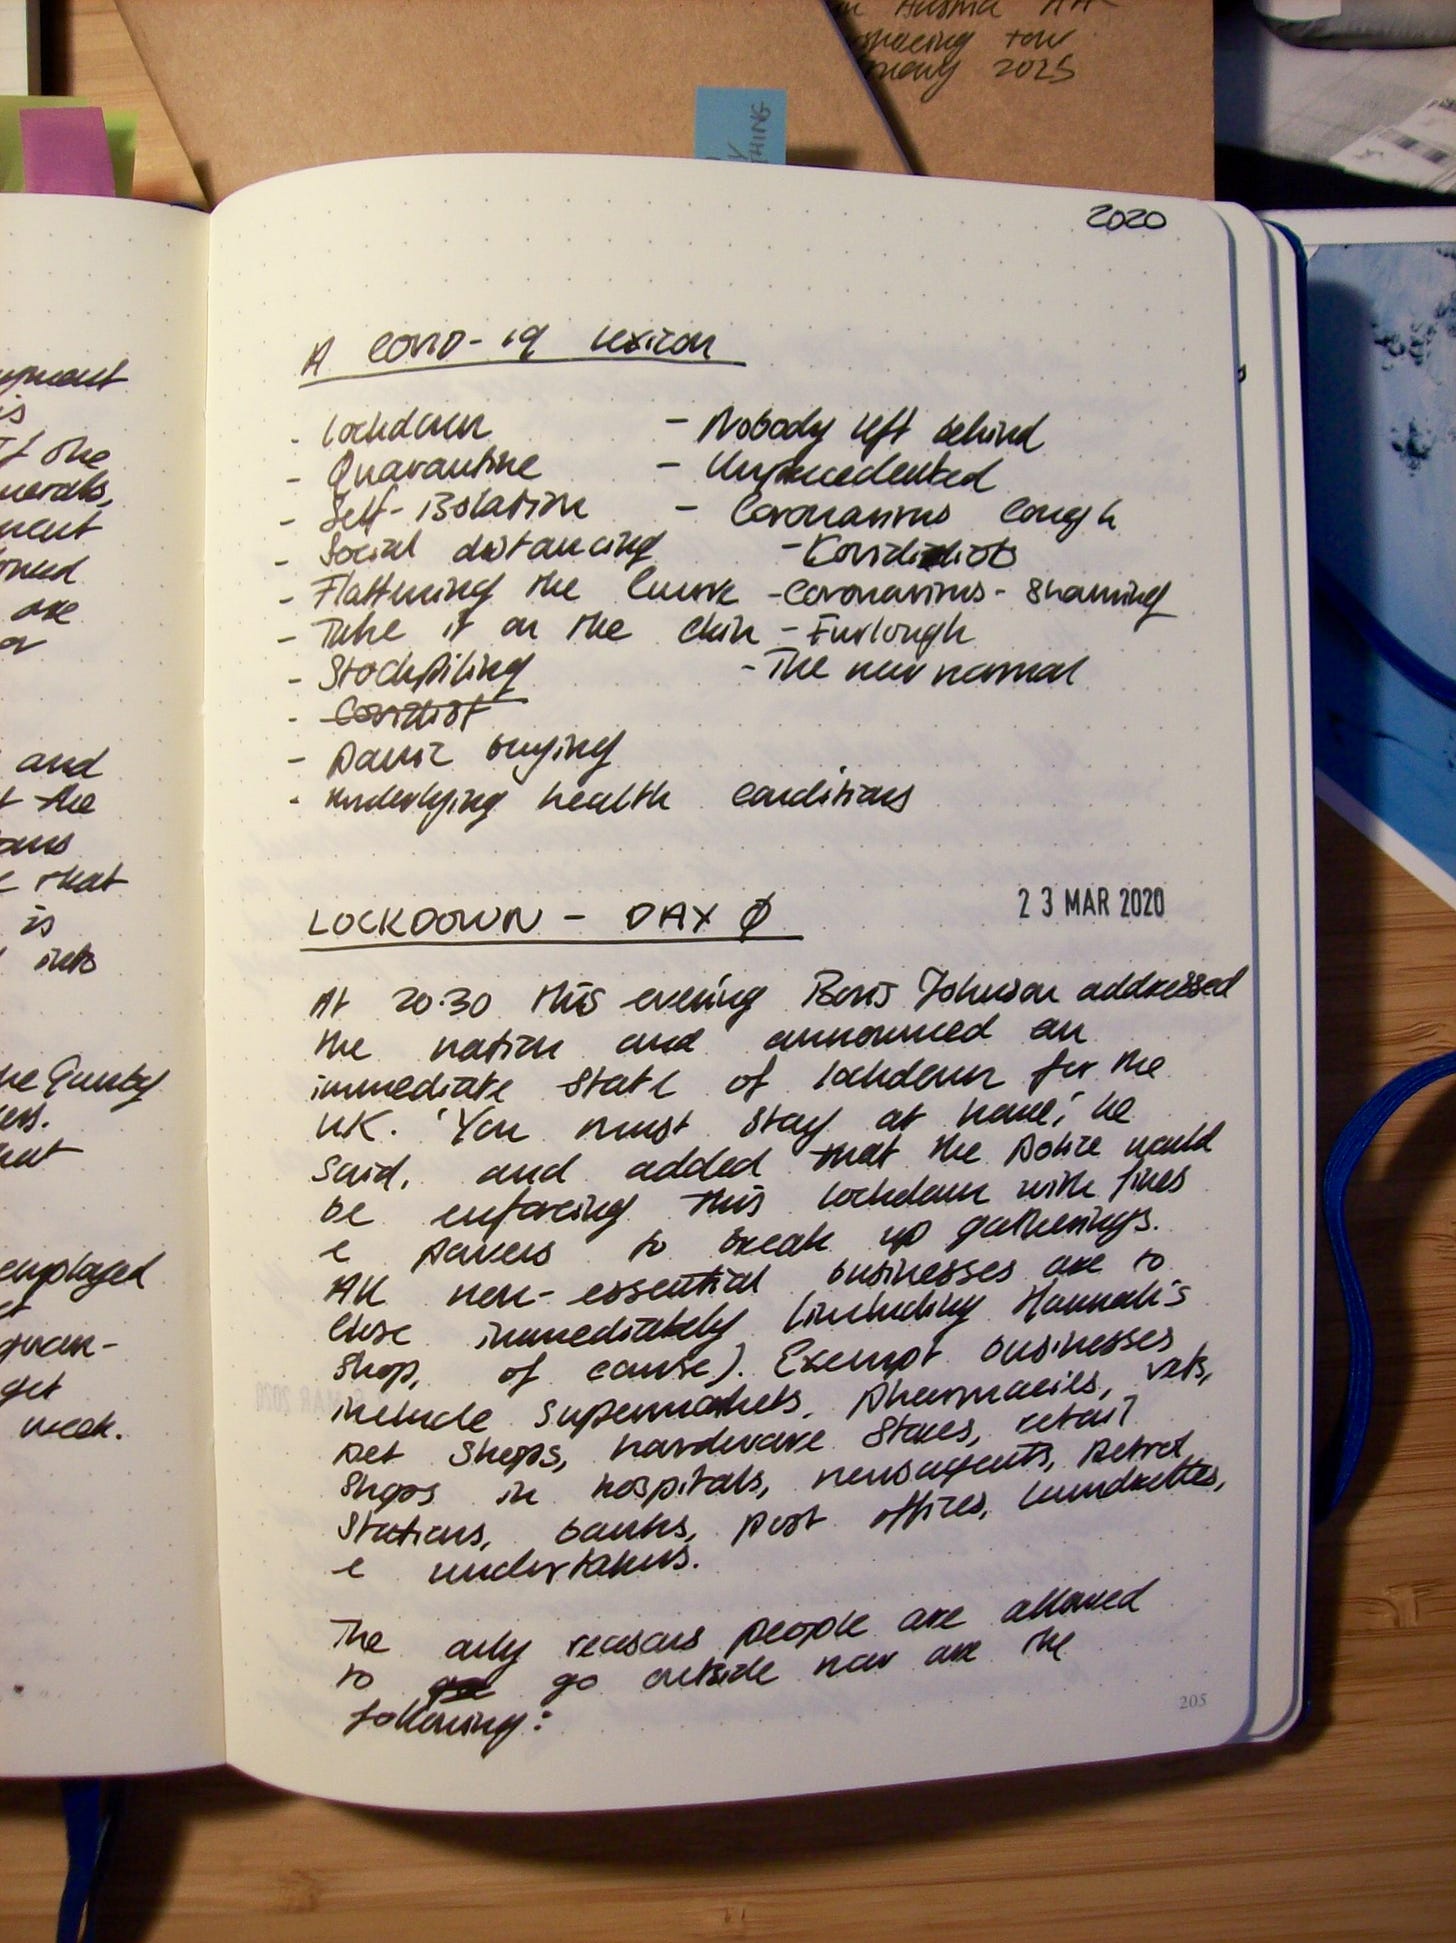 in Austria
spacing tour
2025
THING
2020
A COVID-19 Lexicon
- Lockdown
- Quarantine
- Self-isolation
- Social distancing
- Flattening the Curve
- Take it on the chin
- Stockpiling
- Covidiot
- Panic buying
- Underlying health conditions
- Nobody left behind
- Unprecedented
- Coronavirus Cough
- Kovidiots
- Coronavirus-Shaming
- Furlough
- The new normal
LOCKDOWN - DAY 0
23 MAR 2020
At 20.30 this evening Boris Johnson addressed
the nation and announced an
immediate state of lockdown for the
UK. 'You must stay at home', he
said, and added that the police would
be enforcing this lockdown with fines
& powers to break up gatherings.
All non-essential businesses are to
close immediately (including Hannah's
shop, of course). Exempt businesses
include supermarkets, pharmacies, vets,
pet shops, hardware stores, retail
shops in hospitals, newsagents, petrol
stations, banks, post offices, laundrettes,
& undertakers.
The only reasons people are allowed
to go outside now are the
following:
205
is
If the
are
or
and
the
that
is
into
employed
get
week.